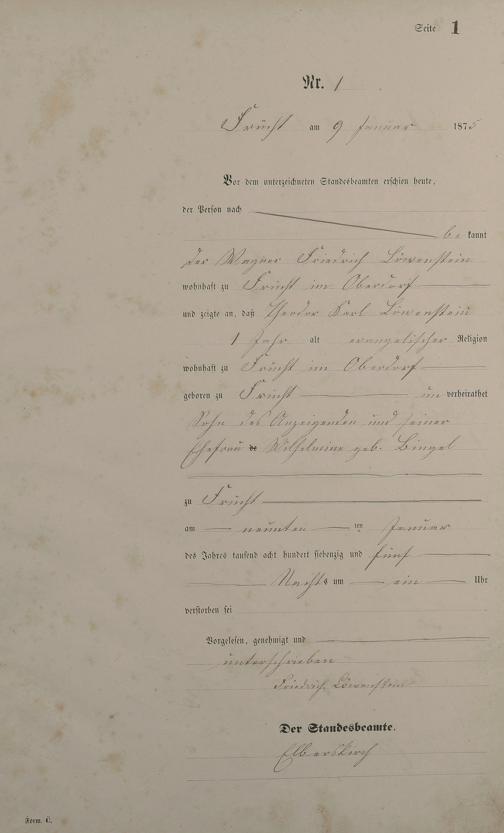 Seite 1
Nr. 1
Frücht am 9 Januar 1875
Vor dem unterzeichneten Standesbeamten erschien heute,
der Person nach
be kannt
der Wagner Friedrich Löwenstein
wohnhaft zu Frücht im Oberdorf
und zeigte an, daß Theodor Karl Löwenstein
1 Jahr alt evangelischer Religion
wohnhaft zu Frücht im Oberdorf
geboren zu Frücht un verheirathet
Sohn des Anzeigenden und seiner
Ehefrau Wilhelmine geb. Bingel
zu Frücht
am neunten ten Januar
des Jahres tausend acht hundert siebenzig und fünf
Nachts um ein Uhr
verstorben sei
Vorgelesen, genehmigt und
unterschrieben
Friedrich Löwenstein
Der Standesbeamte.
Elberskirch
Form. C.